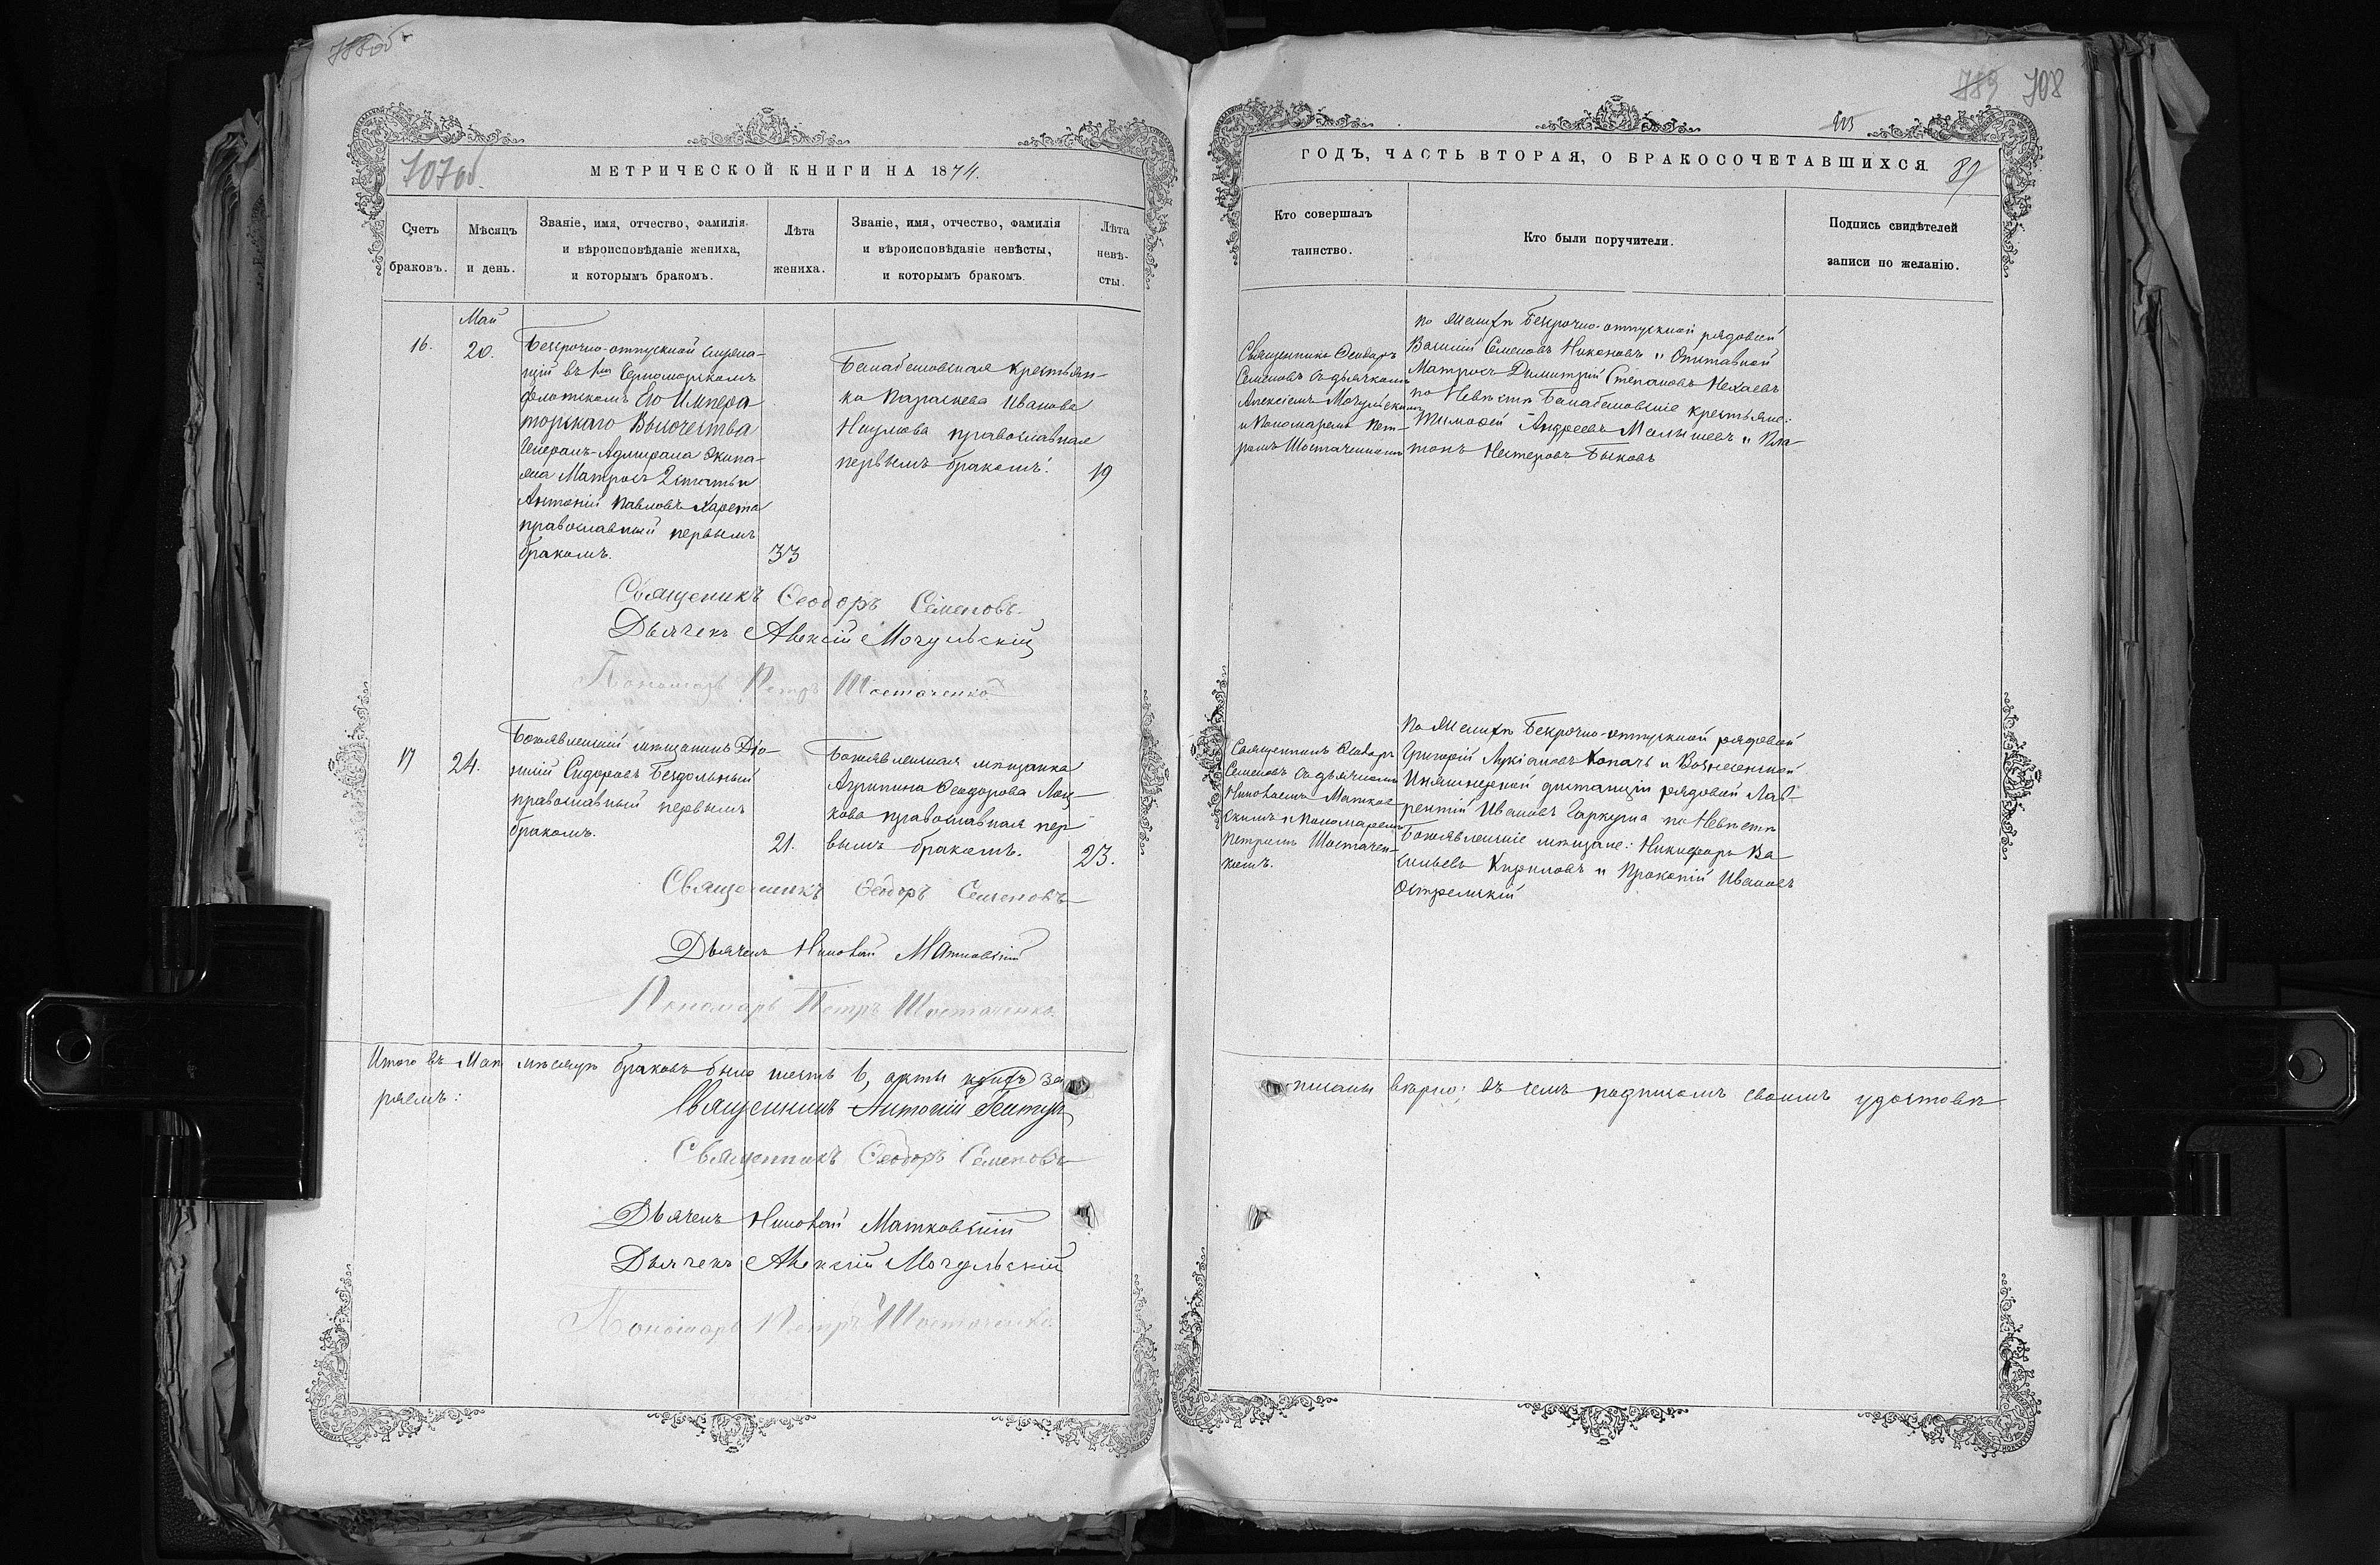 707об.
МЕТРИЧЕСКОЙ КНИГИ НА 1874.
Счетъ браковъ.
Мѣсяцъ и день.
Званіе, имя, отчество, фамилія
и вѣроисповѣданіе жениха,
и которымъ бракомъ.
Лѣта
жениха.
Званіе, имя, отчество, фамилія
и вѣроисповѣданіе невѣсты,
и которымъ бракомъ.
Лѣта
невѣ-
сты.
16.
Май
20.
Безсрочно-отпускной служа-
щій въ 1мъ Черноморскомъ
флотскомъ Его Импера
торскаго Высочества
Генералъ-Адмирала Экипа-
жа Матросъ 2 статьи
Антоній Павловъ Харета
православный первымъ
бракомъ.
33
Балабановская крестьян-
ка Параскева Иванова
Наумова православная
первымъ бракомъ.
19
Священикъ Ѳеодоръ Семеновъ
Дьячекъ Алексій Мочульскій
Пономарь Петръ Шостаченко
17
24.
Богоявленскій мѣщанинъ Діо-
нисій Сидоровъ Бездольный
православный первымъ
бракомъ.
21.
Богоявленская мѣщанка
Агрипина Ѳеодорова Лоц-
кова православная пер
вымъ бракомъ.
23.
Священникъ Ѳеодоръ Семеновъ
Дьячекъ Николай Матковскій
Пономарь Петръ Шостаченко
Итого въ Маѣ мѣсяцѣ браковъ было шесть 6, акты за
ряемъ:
Священникъ Антоній
Священникъ Ѳеодоръ Семеновъ
Дьячекъ Николай Матковскій
Дьячекъ Алексій Мочульскій
Пономарь Петръ Шостаченко
789 708
ГОДЪ, ЧАСТЬ ВТОРАЯ, О БРАКОСОЧЕТАВШИХСЯ.
89
Кто совершалъ
таинство.
Кто были поручители.
Подпись свидѣтелей
записи по желанію.
Священникъ Ѳеодоръ
Семеновъ съ дьячкомъ
Алексіемъ Мочульскимъ
и Пономаремъ Пет-
ромъ Шостаченкомъ
по Женихѣ Безсрочно-отпускной рядовой
Василій Семеновъ Никоновъ и Отставной
Матросъ Димитрій Степановъ Нехаевъ
по Невѣстѣ Балабановскіе крестьяне:
Тимоѳей Андреевъ Малышевъ и Пла-
тонъ Нестеровъ Быковъ
Священникъ Ѳеодоръ
Семеновъ съ дьячкомъ
Николаемъ Матков
скимъ и Пономаремъ
Петромъ Шостачен-
комъ.
По Женихѣ Безсрочно-отпускной рядовой
Григорій Лукіановъ Копачъ и Вознесенской
Инженерной дистанціи рядовой Лав-
рентій Ивановъ Гаркуша по Невѣстѣ
Богоявленскіе мѣщане: Никифоръ Ва
сильевъ Кириловъ и Прокопій Ивановъ
Острельскій
писаны вѣрно; въ чемъ подписомъ своимъ удостовѣ